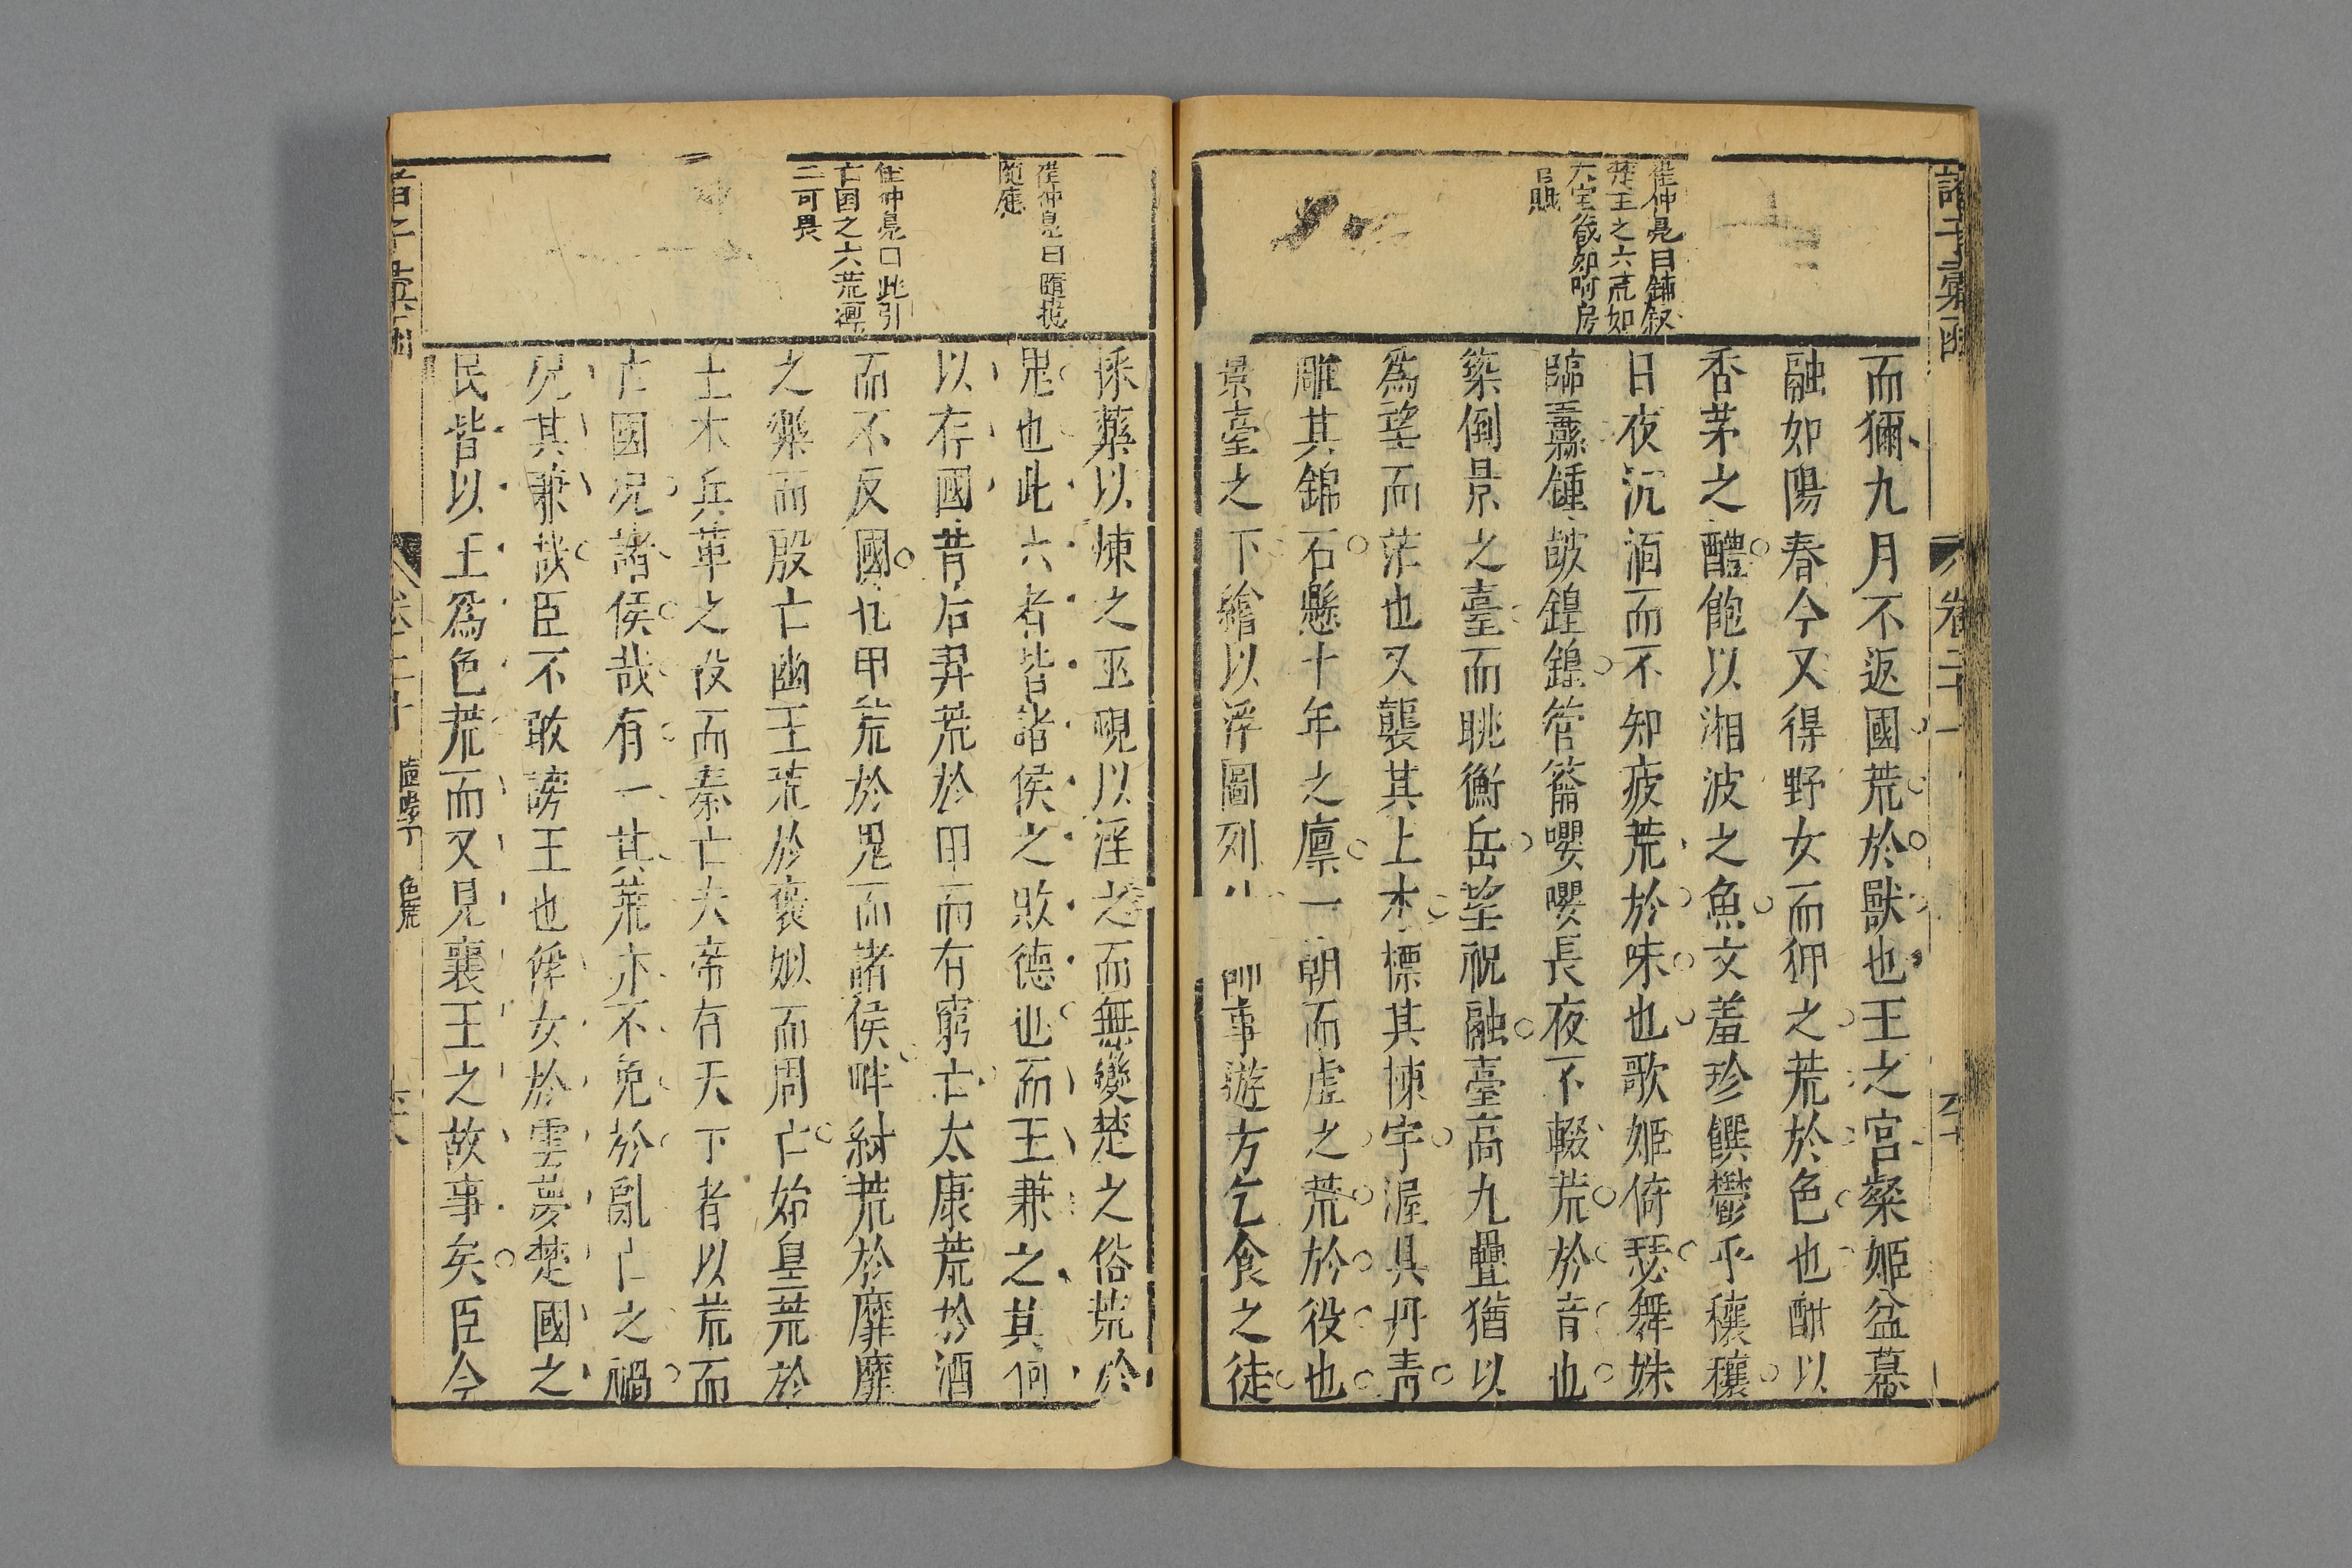 諸子彙函
卷二十一
崔仲鳧曰鋪叙
楚王之六荒如
六宮……阿房
宮賦
而獮九月不返國荒於獸也王之宮粲姬盆幕
融如陽春今又得野女而狎之荒於色也酣以
香茅之醴飽以湘波之魚文羞珍饌鬱乎穰穰
日夜沉湎而不知疲荒於味也歌姬倚瑟舞姝
臨纛鍾皷鍠鍠管籥嚶嚶長夜不輟荒於音也
築倒景之臺而眺衡岳望祝融臺高九疊猶以
為望而茫也又襲其上木標其棟宇渥具丹青
雕其錦石懸十年之廪一朝而虛之荒於役也
景臺之下繪以浮圖列 師事遊方乞食之徒
崔仲鳧曰隨換
隨應
崔仲鳧曰此引
亡國之六荒
二可畏
採藥以煉之巫覡以淫之而無變楚之俗荒於
鬼也此六者皆諸侯之敗德也而王兼之其何
以存國昔后羿荒於田而有窮亡太康荒於酒
而不反國孔甲荒於鬼而諸侯畔紂荒於靡靡
之樂而殷亡幽王荒於褒姒而周亡始皇荒於
土木兵革之役而秦亡夫帝有天下者以荒而
亡國况諸侯哉有一其荒亦不免於亂亡之禍
况其兼哉臣不敢謗王也倅女於雲夢楚國之
民皆以王為色荒而又見襄王之故事矣臣今
諸子彙函
卷二十
色荒